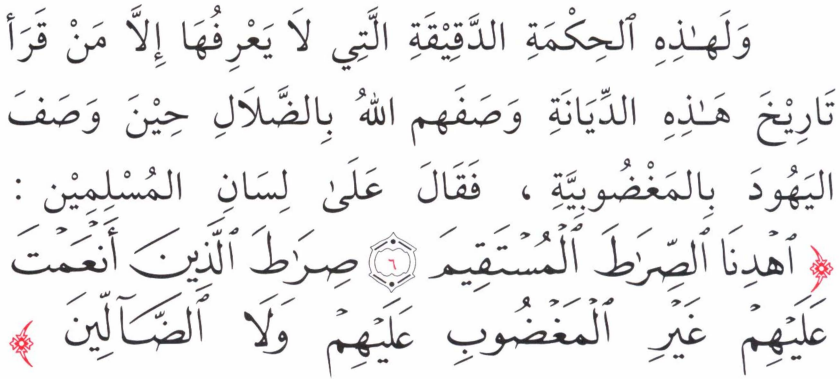 وَلَهـٰذِهِ ٱلحِكْمَةِ الدَّقِيْقَةِ الَّتِي لَا يَعْرِفُهَا إِلَّا مَنْ قَرَأَ
تَارِيْخَ هَـٰذِهِ الدِّيَانَةِ وَصَفَهم اللهُ بِالضَّلَالِ حِيْنَ وَصَفَ
اليَهُودَ بِالمَغْضُوبِيَّةِ ، فَقَالَ عَلَىٰ لِسَانِ المُسْلِمِيْن :
﴿ ٱهۡدِنَا ٱلصِّرَٰطَ ٱلۡمُسۡتَقِيمَ ٦ صِرَٰطَ ٱلَّذِينَ أَنۡعَمۡتَ
عَلَيۡهِمۡ غَيۡرِ ٱلۡمَغۡضُوبِ عَلَيۡهِمۡ وَلَا ٱلضَّآلِّينَ ﴾